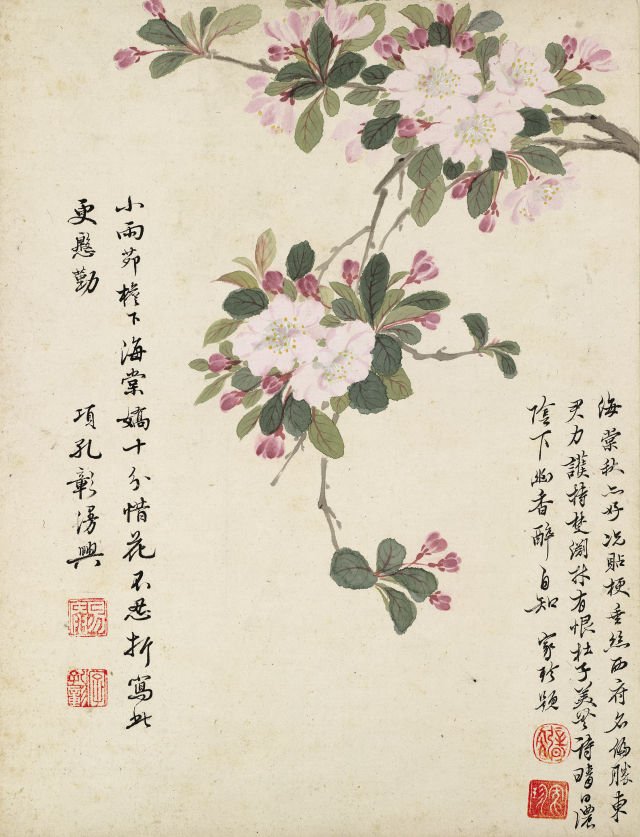 海棠秋亦好况貼梗垂絲西府名偏勝東
君力護持淵材有恨杜子美無詩晴日濃
陰下幽香醉自知 家珍題
小雨茆檐下海棠嬌十分惜花不忍折寫此
更慇勤
項孔彰漫興